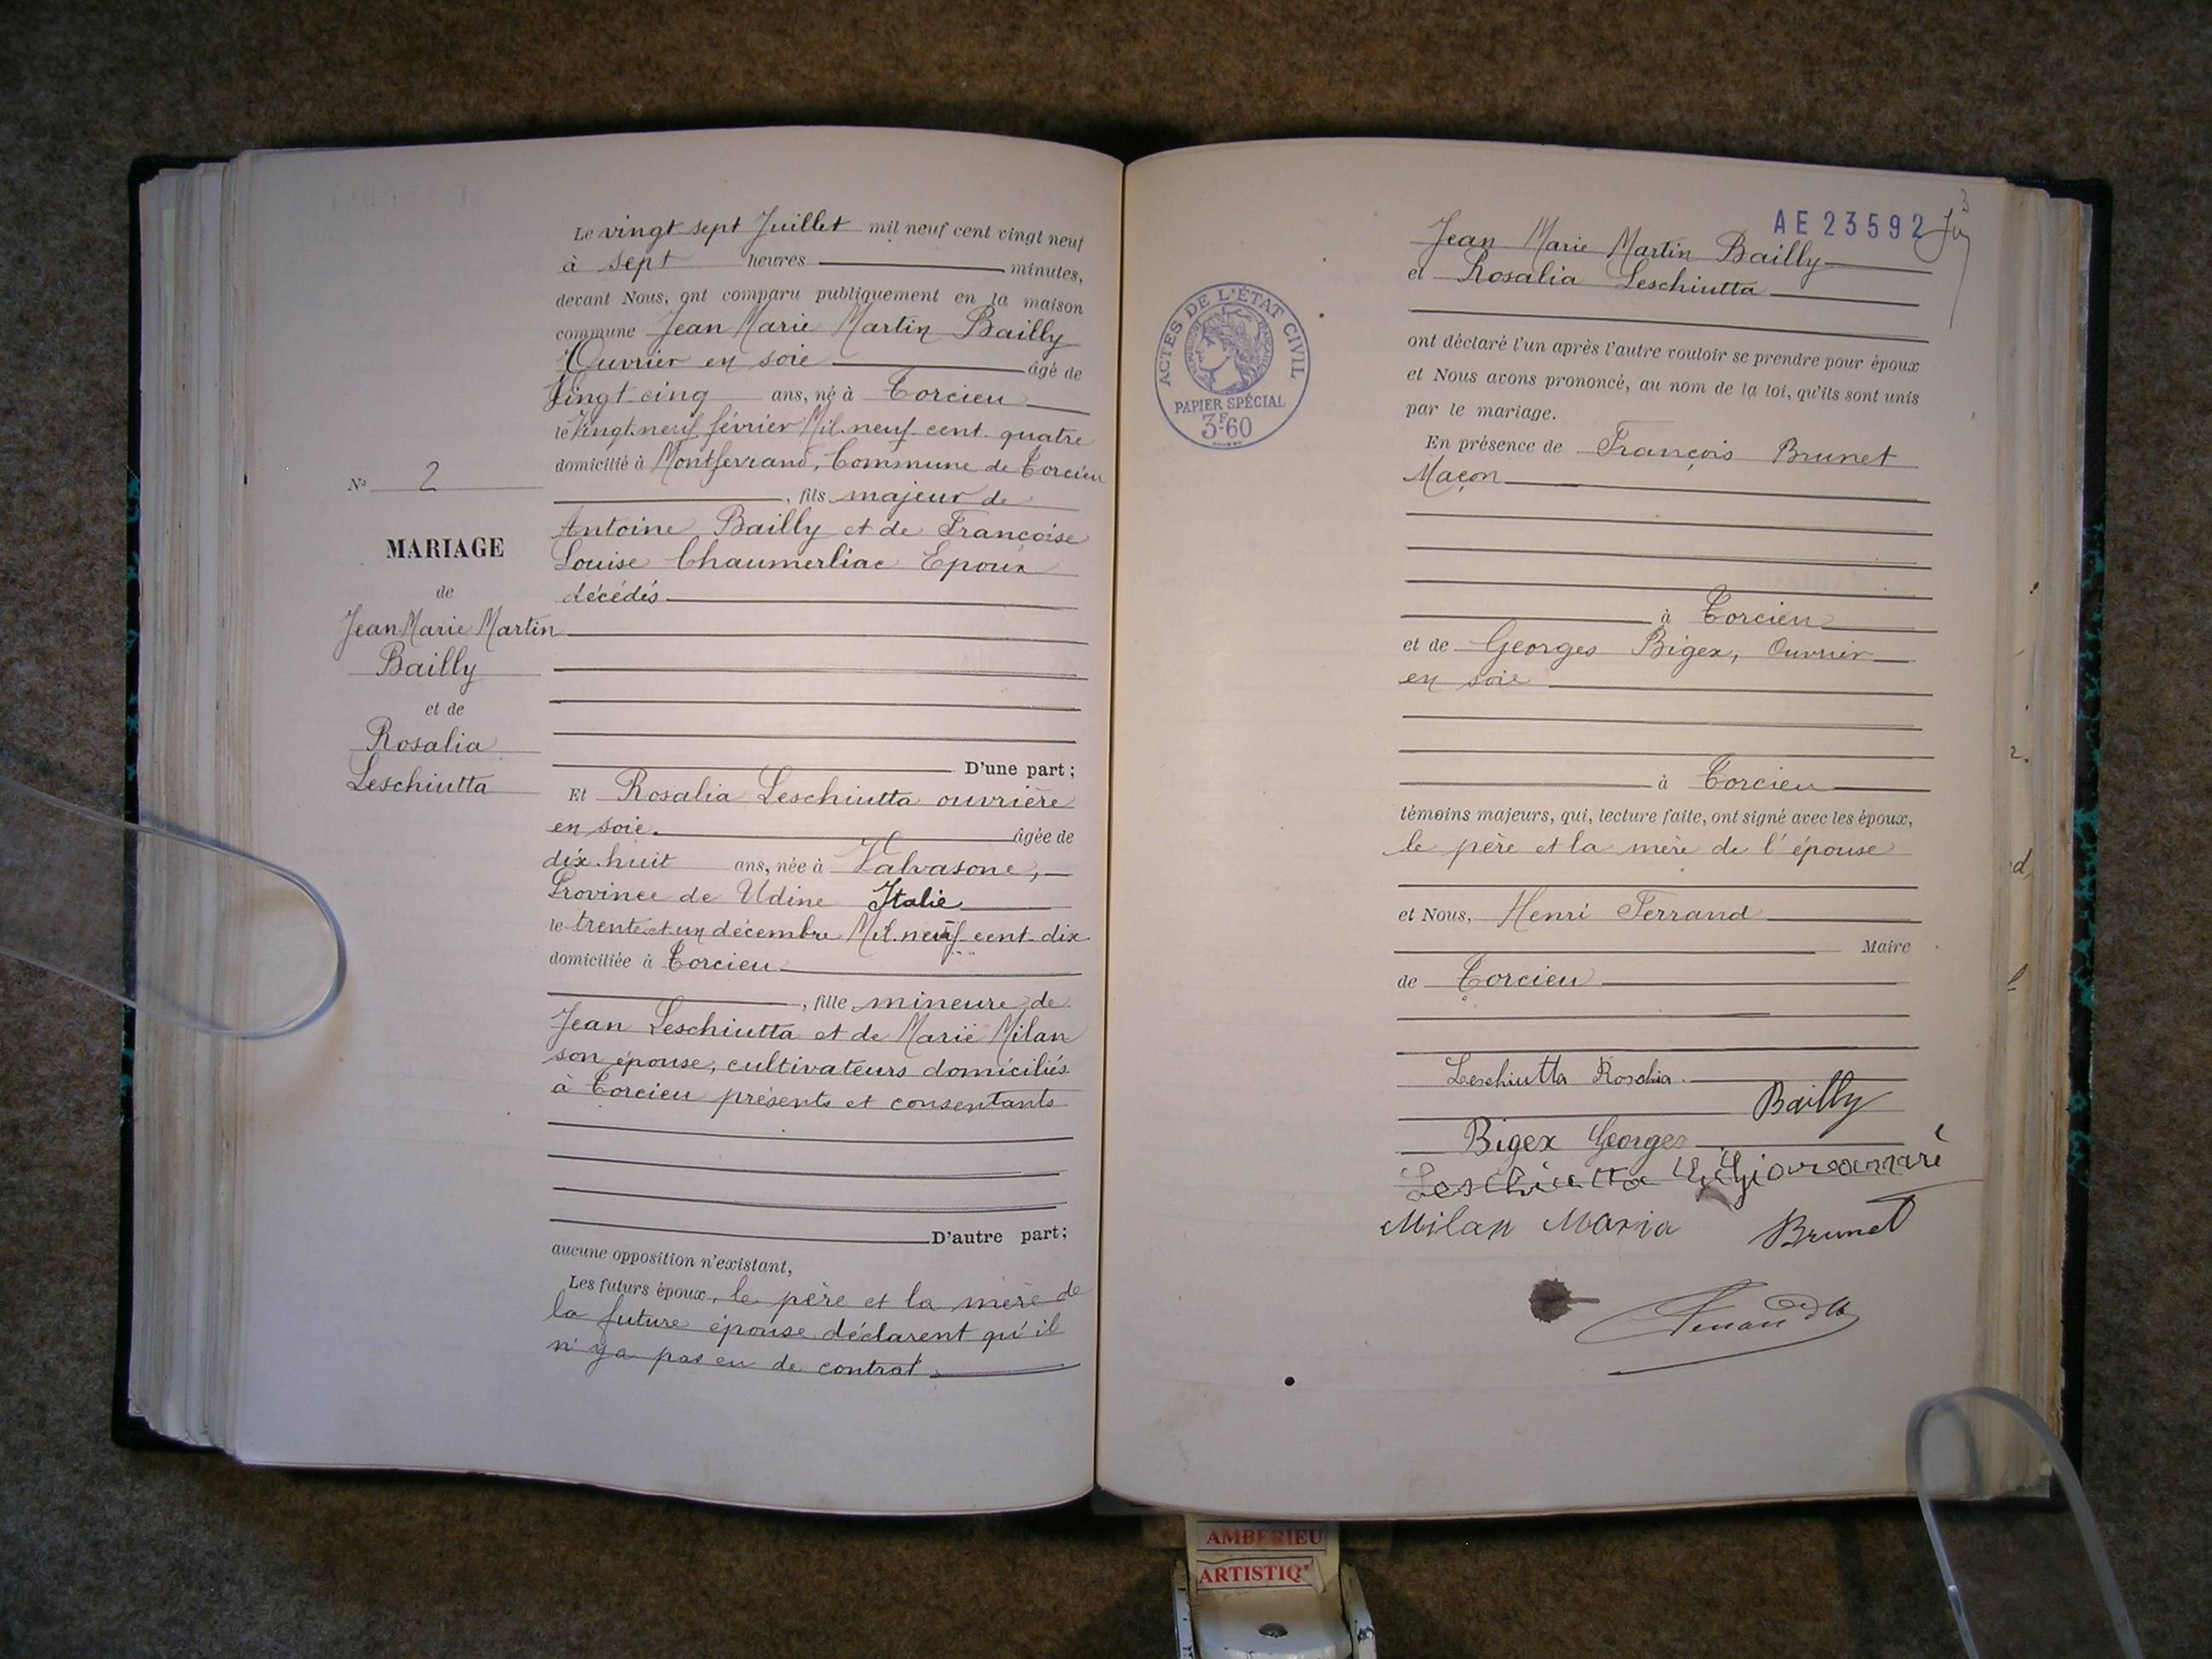 N° 2
MARIAGE
de
Jean Marie Martin
Bailly
et de
Rosalia
Leschiutta
Le vingt sept Juillet mil neuf cent vingt neuf
à sept heures minutes,
devant Nous, ont comparu publiquement en la maison
commune Jean Marie Martin Bailly
Ouvrier en soie âgé de
Vingt cinq ans, né à Torcieu
le Vingt neuf février Mil neuf cent quatre
domicilié à Montferrand, Commune de Torcieu
, fils majeur de
Antoine Bailly et de Françoise
Louise Chaumerliac Epoux
décédés
D'une part;
Et Rosalia Leschiutta ouvrière
en soie. âgée de
dix huit ans, née à Valvasone,
Province de Udine Italie
le trente et un décembre Mil neuf cent dix
domiciliée à Torcieu
, fille mineure de
Jean Leschiutta et de Marie Milan
son épouse, cultivateurs domiciliés
à Torcieu présents et consentants
D'autre part;
aucune opposition n'existant,
Les futurs époux, le père et la mère de
la future épouse déclarent qu'il
n'y a pas eu de contrat
AE 23592
3
Jean Marie Martin Bailly
et Rosalia Leschiutta
ACTES DE L'ÉTAT CIVIL
PAPIER SPÉCIAL
3F60
ont déclaré l'un après l'autre vouloir se prendre pour époux
et Nous avons prononcé, au nom de la loi, qu'ils sont unis
par le mariage.
En présence de François Brunet
Maçon
à Torcieu
et de Georges Bigex, Ouvrier
en soie
à Torcieu
témoins majeurs, qui, lecture faite, ont signé avec les époux,
le père et la mère de l'épouse
et Nous, Henri Ferrand
Maire
de Torcieu
Leschiutta Rosalia.
Bailly
Bigex Georges
Leschiutta
Milan Maria Brunet
Ferrand
AMBERIEU
ARTISTIQ'